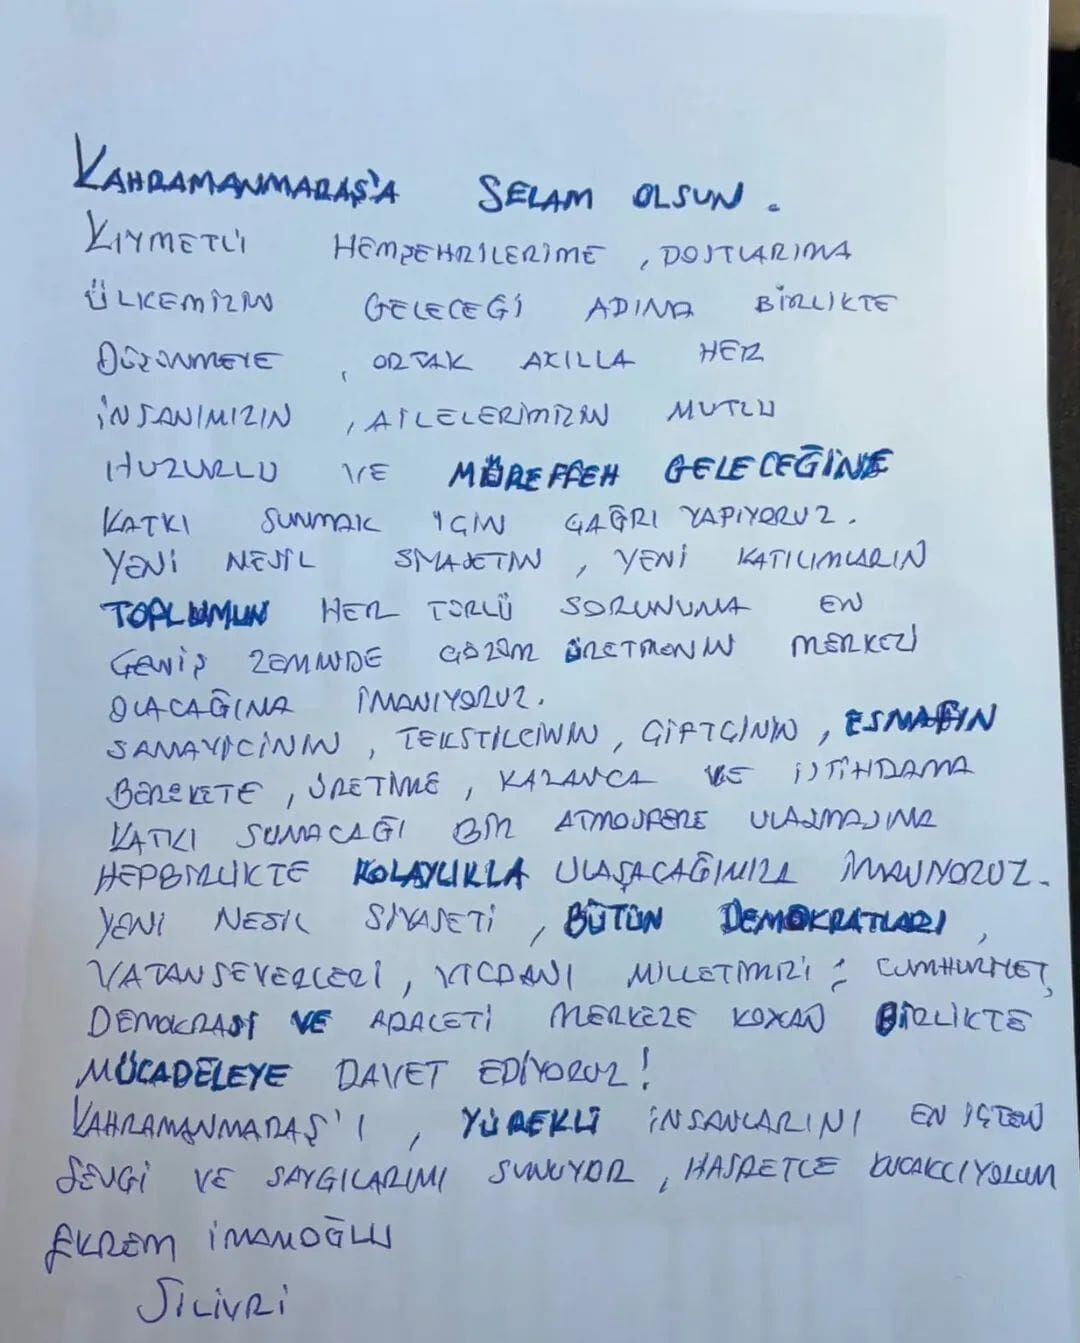 KAHRAMANMARAŞ'A SELAM OLSUN.
KIYMETLİ HEMŞEHRİLERİME, DOSTLARIMA
ÜLKEMİZİN GELECEĞİ ADINA BİRLİKTE
DÜŞÜNMEYE, ORTAK AKILLA HER
İNSANIMIZIN, AİLELERİMİZİN MUTLU
HUZURLU VE MÜREFFEH GELECEĞİNE
KATKI SUNMAK İÇİN ÇAĞRI YAPIYORUZ.
YENİ NESİL SİYASETİN, YENİ KATILIMLARIN
TOPLUMUN HER TÜRLÜ SORUNUNA EN
GENİŞ ZEMİNDE ÇÖZÜM ÜRETMENİN MERKEZİ
OLACAĞINA İNANIYORUZ.
SANAYİCİNİN, TEKSTİLCİNİN, ÇİFTÇİNİN, ESNAFIN
BEREKETE, ÜRETİME, KAZANCA VE İSTİHDAMA
KATKI SUNACAĞI BİR ATMOSFERE ULAŞMASINA
HEPBİRLİKTE KOLAYLIKLA ULAŞACAĞIMIZA İNANIYORUZ.
YENİ NESİL SİYASETİ, BÜTÜN DEMOKRATLARI,
VATANSEVERLERİ, VİCDANI MİLLETİMİZİ; CUMHURİYET,
DEMOKRASİ VE ADALETİ MERKEZE KOYAN BİRLİKTE
MÜCADELEYE DAVET EDİYORUZ!
KAHRAMANMARAŞ'I, YÜREKLİ İNSANLARINI EN İÇTEN
SEVGİ VE SAYGILARIMI SUNUYOR, HASRETLE KUCAKLIYORUM
EKREM İMAMOĞLU
SİLİVRİ